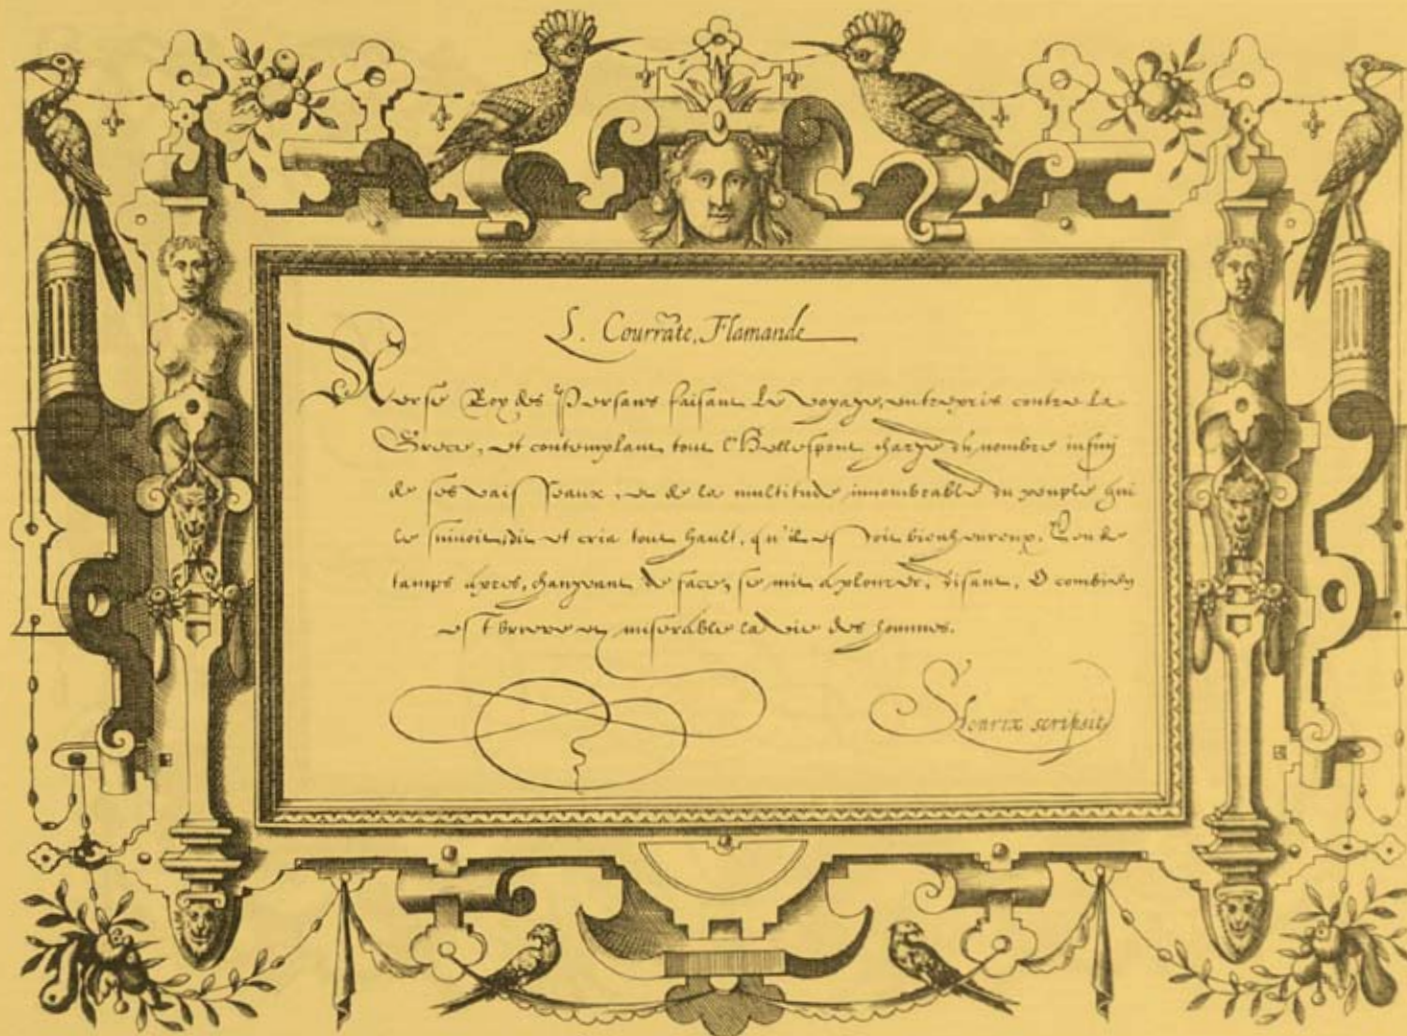 L. Courrãte, Flamande
Xerse Roy des Persans faisant le voyage, entrepris contre la
Grece, et contemplant tout l'Hellespont charge du nombre infiny
de ses vaisseaux, et de la multitude innombrable du peuple qui
le suivoit, dit et cria tout hault, qu'il estoit bienheureux. Peu de
tamps apres, changeant de face, se mit a plourer, disant, O combien
est brieve et miserable la vie des hommes.
scripsit